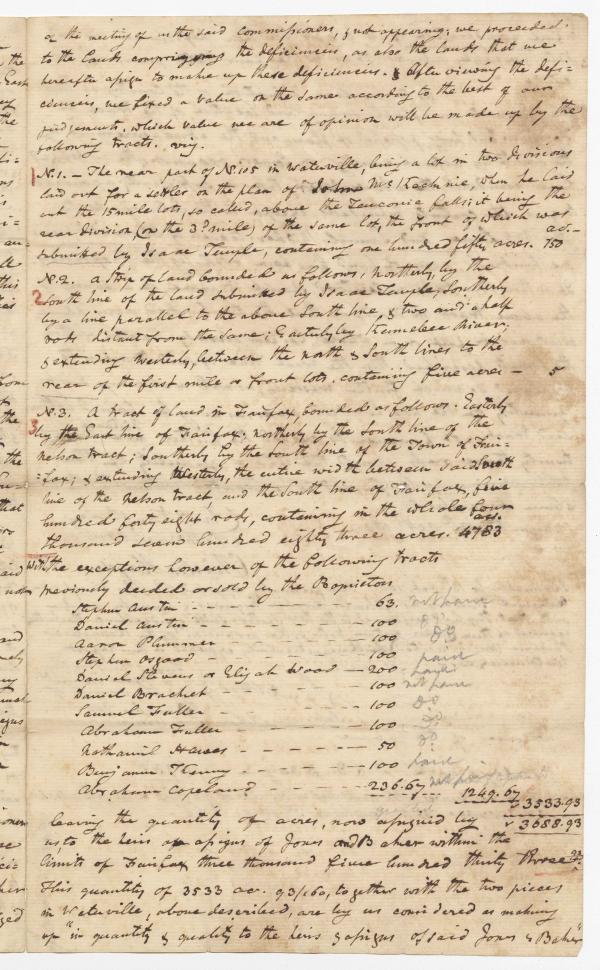 at the meeting of us the said commissioners, & not appearing; we proceeded
to the lands comprizing the deficiencies, as also the lands that we
hereafter assign to make up these deficiencies. & After viewing the defi-
ciencies, we fixed a value on the same according to the best of our
judgements. which value we are of opinion will be made up by the
following tracts. viz.
1 N.1. - The rear part of N.105 in Waterville, being a lot in two divisions
laid out for a settler on the plan of John McKechnie, when he laid
out the 15 mile lots, so called, above the Teuconic falls; it being the
rear division (or the 3d mile) of the same lot, the front of which was
submitted by Isaac Temple, containing one hundred fifty acres. acs.- 150
2 N.2. a strip of land bounded as follows; northerly, by the
South line of the land submitted by Isaac Temple; Southerly
by a line parallel to the above South line, & two and a half
rods distant from the same; Easterly by Kennebec River;
& extending Westerly, between the north & South lines to the
rear of the first mile or front lots. containing five acres - 5
3 N.3. A tract of land in Fairfax bounded as follows. Easterly
by the East line of Fairfax. northerly by the South line of the
nelson tract; Southerly by the South line of the Town of Fair-
-fax; & extending Westerly, the entire width between said South
line of the nelson tract, and the South line of Fairfax, five
hundred forty eight rods, containing in the whole four
thousand seven hundred eighty three acres. acs. 4783
With the exceptions however of the following tracts
previously deeded or sold by the Proprietors
Stephen Austin - - - 63. not paid
Daniel Austin - - - 100 Do
Aaron Plummer - - - 100 Do
Stephen Osgood - - - 100 paid
Daniel Stevens or Elijah Wood - 200
Daniel Brachet - - - 100 not paid
Samuel Fuller - - - 100 Do
Abraham Fuller - - - 100 Do
Nathaniel Hawes - - - 50 Do
Benjamin Kenny - - - 100 paid
Abraham Copeland - - - 236.67 not paid
1249.67
3533.93
3688.93
leaving the quantity of acres, now assigned by
us to the heirs or assigns of Jones and Baker within the
limits of Fairfax three thousand five hundred thirty three 93
This quantity of 3533 ac. 93/160, together with the two pieces
in Waterville, above described, are by us considered as making
up "in quantity & quality to the heirs & assigns of said Jones & Baker"